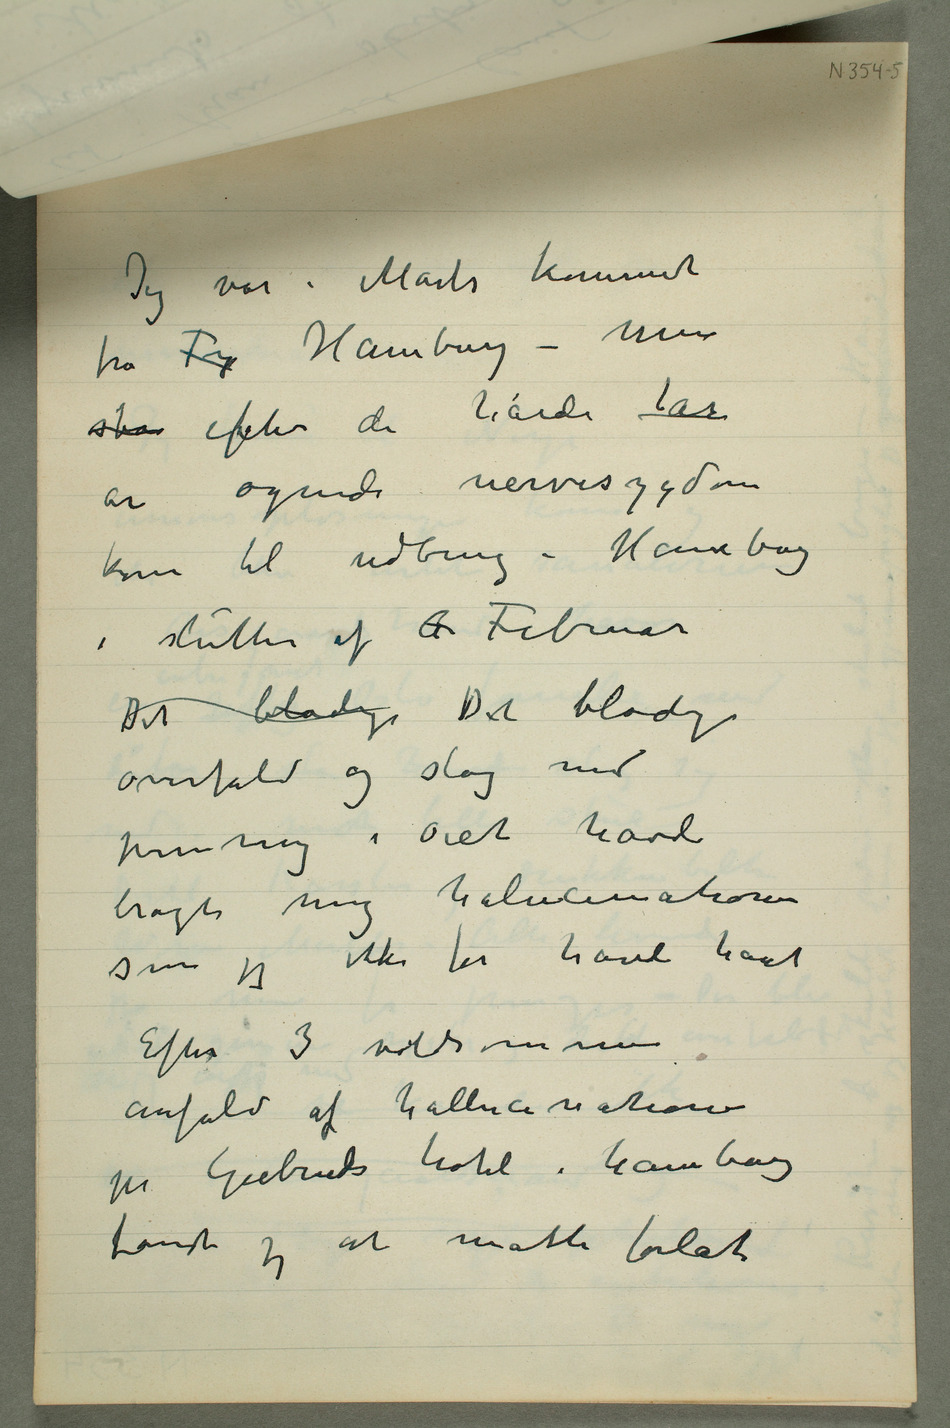 N 354-5
Jeg var i Marts kommet
fra Hamburg – men
efter de hårde
år nervesygdom
kom til udbrug i Hamburg
i slutten af Februar
Det blodige Det blodige
overfald og slag med
i öiet havde
bragt mig halucinationer
som jeg ikke før havde havt
Efter 3 voldsomme
anfald af hallucinationer
på hotel i hamburg
fandt jeg at måtte forlate